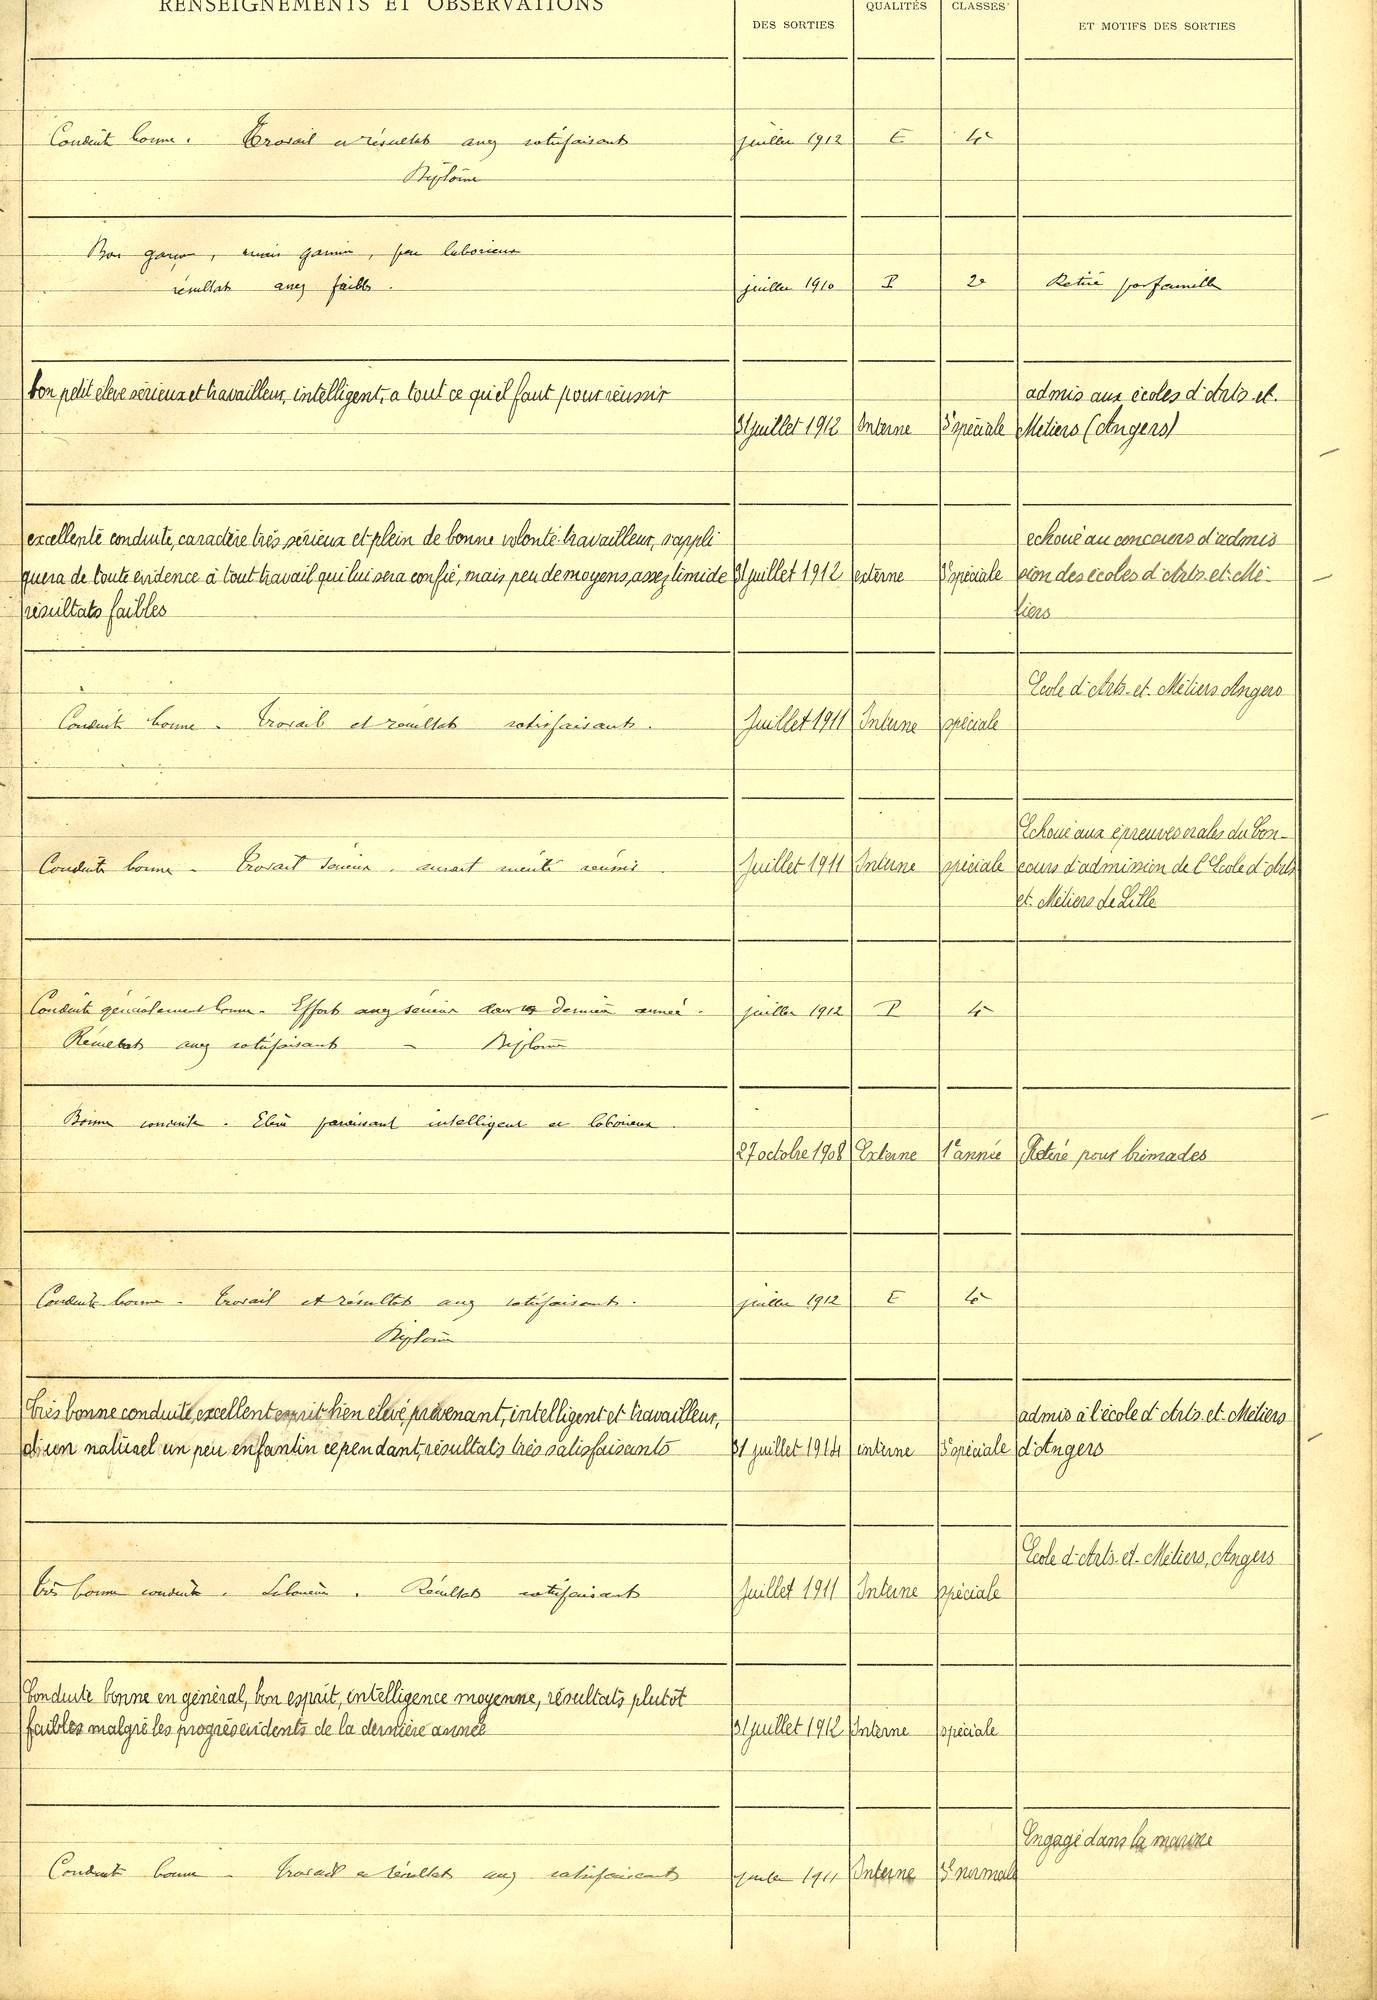 RENSEIGNEMENTS ET OBSERVATIONS
DES SORTIES
QUALITÉS
CLASSES
ET MOTIFS DES SORTIES
Conduite bonne. Travail et résultats assez satisfaisants
Diplôme
juillet 1912
E
4e
Bon garçon, mais gamin, peu laborieux
résultats assez faibles.
juillet 1910
P
2e
Retiré par famille
bon petit élève sérieux et travailleur, intelligent, a tout ce qu'il faut pour réussir
31 juillet 1912
Interne
3e spéciale
admis aux écoles d'Arts et
Métiers (Angers)
excellente conduite, caractère très sérieux et plein de bonne volonté travailleur, s'appli
quera de toute évidence à tout travail qui lui sera confié, mais peu de moyens, assez timide
résultats faibles
31 juillet 1912
externe
3e spéciale
échoué au concours d'admis
sion des écoles d'Arts et Mé-
tiers
Conduite bonne - Travail et résultats satisfaisants.
Juillet 1911
Interne
spéciale
Ecole d'Arts-et-Métiers Angers
Conduite bonne - Travail sérieux. aurait mérité réussir.
Juillet 1911
Interne
spéciale
Echoué aux épreuves orales du Con-
cours d'admission de l'Ecole d'Arts
et Métiers de Lille
Conduite généralement bonne - Efforts assez sérieux dans la dernière année.
Résultats assez satisfaisants - Diplôme
juillet 1912
P
4e
Bonne conduite. Elève paraissant intelligent et laborieux.
27 octobre 1908
Externe
1e année
Retiré pour brimades
Conduite bonne - Travail et résultats assez satisfaisants.
Diplôme
juillet 1912
E
4e
Très bonne conduite, excellent esprit bien élevé, prévenant, intelligent et travailleur,
d'un naturel un peu enfantin cependant, résultats très satisfaisants
31 juillet 1914
interne
3e spéciale
admis à l'école d'Arts et Métiers
d'Angers
Très bonne conduite. Laborieux. Résultats satisfaisants
Juillet 1911
Interne
spéciale
Ecole d'Arts-et-Métiers, Angers
Conduite bonne en général, bon esprit, intelligence moyenne, résultats plutôt
faibles malgré les progrès évidents de la dernière année
31 juillet 1912
Interne
spéciale
Conduite bonne - Travail et résultats assez satisfaisants
juillet 1911
Interne
3e normale
Engagé dans la marine